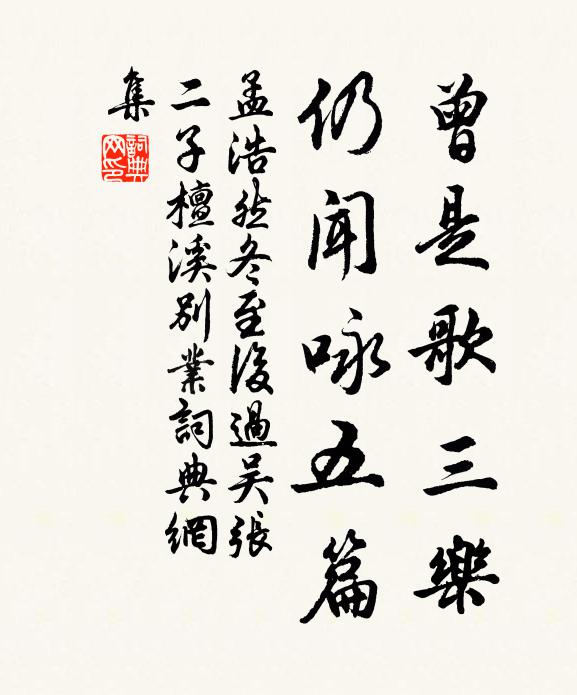 曾是歌三樂
仍聞咏五篇
孟浩然冬至後過吴張
二子檀溪別業詞典網
集
詞典
网印